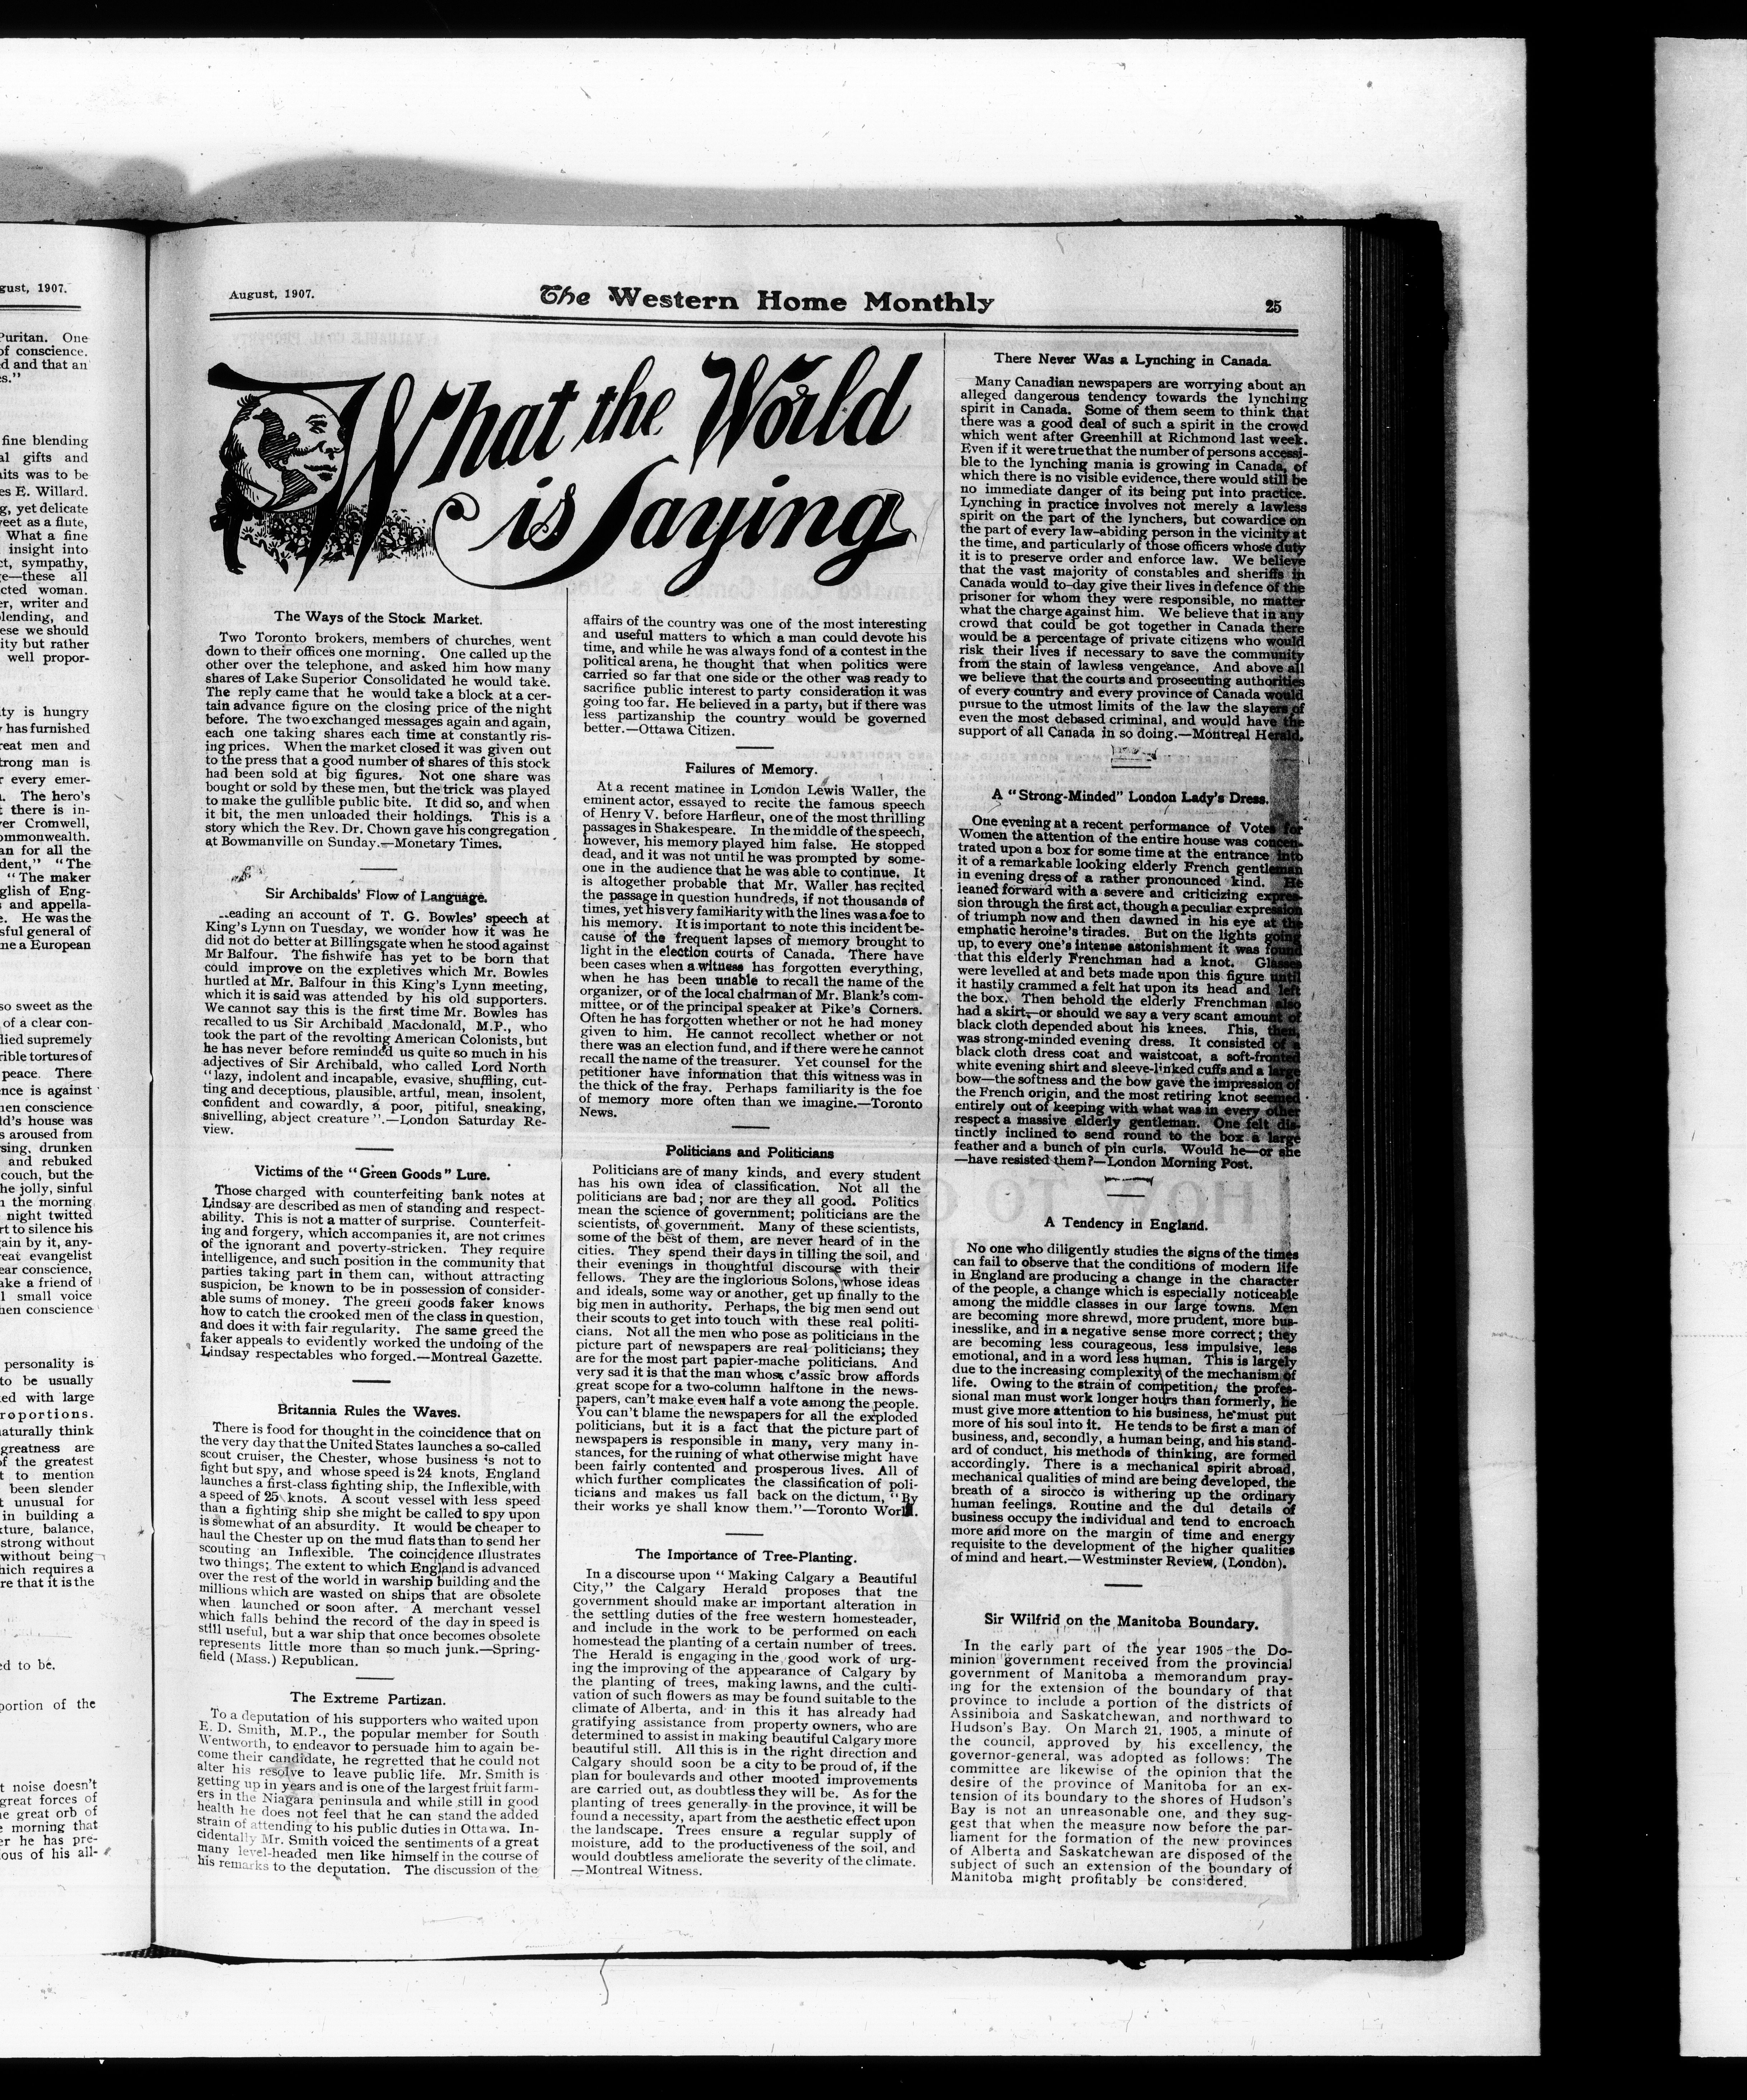 gust, 1907.
Puritan. One
of conscience.
d and that an
es."
fine blending
al gifts and
aits was to be
es E. Willard.
g, yet delicate
eet as a flute,
What a fine
insight into
ct, sympathy,
ge—these all
cted woman.
er, writer and
blending, and
ese we should
ity but rather
well propor-
ity is hungry
y has furnished
reat men and
trong man is
r every emer-
n. The hero's
t there is in-
ver Cromwell,
ommonwealth.
an for all the
dent," "The
"The maker
glish of Eng-
s and appella-
e. He was the
sful general of
ne a European
so sweet as the
of a clear con-
died supremely
rible tortures of
peace. There
ence is against
hen conscience
ld's house was
s aroused from
rsing, drunken
and rebuked
couch, but the
he jolly, sinful
n the morning
night twitted
rt to silence his
gain by it, any-
reat evangelist
ear conscience,
ake a friend of
l small voice
hen conscience
personality is
to be usually
ed with large
roportions.
naturally think
greatness are
of the greatest
t to mention
been slender
t unusual for
in building a
xture, balance,
strong without
without being
hich requires a
re that it is the
ed to be.
portion of the
t noise doesn't
great forces of
he great orb of
e morning that
er he has pre-
ous of his all-
August, 1907.
The Western Home Monthly
25
What the World
is Saying
The Ways of the Stock Market.
Two Toronto brokers, members of churches, went
down to their offices one morning. One called up the
other over the telephone, and asked him how many
shares of Lake Superior Consolidated he would take.
The reply came that he would take a block at a cer-
tain advance figure on the closing price of the night
before. The two exchanged messages again and again,
each one taking shares each time at constantly ris-
ing prices. When the market closed it was given out
to the press that a good number of shares of this stock
had been sold at big figures. Not one share was
bought or sold by these men, but the trick was played
to make the gullible public bite. It did so, and when
it bit, the men unloaded their holdings. This is a
story which the Rev. Dr. Chown gave his congregation
at Bowmanville on Sunday.—Monetary Times.
Sir Archibalds' Flow of Language.
eading an account of T. G. Bowles' speech at
King's Lynn on Tuesday, we wonder how it was he
did not do better at Billingsgate when he stood against
Mr Balfour. The fishwife has yet to be born that
could improve on the expletives which Mr. Bowles
hurtled at Mr. Balfour in this King's Lynn meeting,
which it is said was attended by his old supporters.
We cannot say this is the first time Mr. Bowles has
recalled to us Sir Archibald Macdonald, M.P., who
took the part of the revolting American Colonists, but
he has never before reminded us quite so much in his
adjectives of Sir Archibald, who called Lord North
"lazy, indolent and incapable, evasive, shuffling, cut-
ting and deceptious, plausible, artful, mean, insolent,
confident and cowardly, a poor, pitiful, sneaking,
snivelling, abject creature".—London Saturday Re-
view.
Victims of the "Green Goods" Lure.
Those charged with counterfeiting bank notes at
Lindsay are described as men of standing and respect-
ability. This is not a matter of surprise. Counterfeit-
ing and forgery, which accompanies it, are not crimes
of the ignorant and poverty-stricken. They require
intelligence, and such position in the community that
parties taking part in them can, without attracting
suspicion, be known to be in possession of consider-
able sums of money. The green goods faker knows
how to catch the crooked men of the class in question,
and does it with fair regularity. The same greed the
faker appeals to evidently worked the undoing of the
Lindsay respectables who forged.—Montreal Gazette.
Britannia Rules the Waves.
There is food for thought in the coincidence that on
the very day that the United States launches a so-called
scout cruiser, the Chester, whose business is not to
fight but spy, and whose speed is 24 knots, England
launches a first-class fighting ship, the Inflexible, with
a speed of 25 knots. A scout vessel with less speed
than a fighting ship she might be called to spy upon
is somewhat of an absurdity. It would be cheaper to
haul the Chester up on the mud flats than to send her
scouting an Inflexible. The coincidence illustrates
two things; The extent to which England is advanced
over the rest of the world in warship building and the
millions which are wasted on ships that are obsolete
when launched or soon after. A merchant vessel
which falls behind the record of the day in speed is
still useful, but a war ship that once becomes obsolete
represents little more than so much junk.—Spring-
field (Mass.) Republican.
The Extreme Partizan.
To a deputation of his supporters who waited upon
E. D. Smith, M.P., the popular member for South
Wentworth, to endeavor to persuade him to again be-
come their candidate, he regretted that he could not
alter his resolve to leave public life. Mr. Smith is
getting up in years and is one of the largest fruit farm-
ers in the Niagara peninsula and while still in good
health he does not feel that he can stand the added
strain of attending to his public duties in Ottawa. In-
cidentally Mr. Smith voiced the sentiments of a great
many level-headed men like himself in the course of
his remarks to the deputation. The discussion of the
affairs of the country was one of the most interesting
and useful matters to which a man could devote his
time, and while he was always fond of a contest in the
political arena, he thought that when politics were
carried so far that one side or the other was ready to
sacrifice public interest to party consideration it was
going too far. He believed in a party, but if there was
less partizanship the country would be governed
better.—Ottawa Citizen.
Failures of Memory.
At a recent matinee in London Lewis Waller, the
eminent actor, essayed to recite the famous speech
of Henry V. before Harfleur, one of the most thrilling
passages in Shakespeare. In the middle of the speech,
however, his memory played him false. He stopped
dead, and it was not until he was prompted by some-
one in the audience that he was able to continue. It
is altogether probable that Mr. Waller has recited
the passage in question hundreds, if not thousands of
times, yet his very familiarity with the lines was a foe to
his memory. It is important to note this incident be-
cause of the frequent lapses of memory brought to
light in the election courts of Canada. There have
been cases when a witness has forgotten everything,
when he has been unable to recall the name of the
organizer, or of the local chairman of Mr. Blank's com-
mittee, or of the principal speaker at Pike's Corners.
Often he has forgotten whether or not he had money
given to him. He cannot recollect whether or not
there was an election fund, and if there were he cannot
recall the name of the treasurer. Yet counsel for the
petitioner have information that this witness was in
the thick of the fray. Perhaps familiarity is the foe
of memory more often than we imagine.—Toronto
News.
Politicians and Politicians
Politicians are of many kinds, and every student
has his own idea of classification. Not all the
politicians are bad; nor are they all good. Politics
mean the science of government; politicians are the
scientists, of government. Many of these scientists,
some of the best of them, are never heard of in the
cities. They spend their days in tilling the soil, and
their evenings in thoughtful discourse with their
fellows. They are the inglorious Solons, whose ideas
and ideals, some way or another, get up finally to the
big men in authority. Perhaps, the big men send out
their scouts to get into touch with these real politi-
cians. Not all the men who pose as politicians in the
picture part of newspapers are real politicians; they
are for the most part papier-mache politicians. And
very sad it is that the man whose c'assic brow affords
great scope for a two-column halftone in the news-
papers, can't make even half a vote among the people.
You can't blame the newspapers for all the exploded
politicians, but it is a fact that the picture part of
newspapers is responsible in many, very many in-
stances, for the ruining of what otherwise might have
been fairly contented and prosperous lives. All of
which further complicates the classification of poli-
ticians and makes us fall back on the dictum, "By
their works ye shall know them."—Toronto World.
The Importance of Tree-Planting.
In a discourse upon "Making Calgary a Beautiful
City," the Calgary Herald proposes that the
government should make an important alteration in
the settling duties of the free western homesteader,
and include in the work to be performed on each
homestead the planting of a certain number of trees.
The Herald is engaging in the good work of urg-
ing the improving of the appearance of Calgary by
the planting of trees, making lawns, and the culti-
vation of such flowers as may be found suitable to the
climate of Alberta, and in this it has already had
gratifying assistance from property owners, who are
determined to assist in making beautiful Calgary more
beautiful still. All this is in the right direction and
Calgary should soon be a city to be proud of, if the
plan for boulevards and other mooted improvements
are carried out, as doubtless they will be. As for the
planting of trees generally in the province, it will be
found a necessity, apart from the aesthetic effect upon
the landscape. Trees ensure a regular supply of
moisture, add to the productiveness of the soil, and
would doubtless ameliorate the severity of the climate.
—Montreal Witness.
There Never Was a Lynching in Canada.
Many Canadian newspapers are worrying about an
alleged dangerous tendency towards the lynching
spirit in Canada. Some of them seem to think that
there was a good deal of such a spirit in the crowd
which went after Greenhill at Richmond last week.
Even if it were true that the number of persons accessi-
ble to the lynching mania is growing in Canada, of
which there is no visible evidence, there would still be
no immediate danger of its being put into practice.
Lynching in practice involves not merely a lawless
spirit on the part of the lynchers, but cowardice on
the part of every law-abiding person in the vicinity at
the time, and particularly of those officers whose duty
it is to preserve order and enforce law. We believe
that the vast majority of constables and sheriffs in
Canada would to-day give their lives in defence of the
prisoner for whom they were responsible, no matter
what the charge against him. We believe that in any
crowd that could be got together in Canada there
would be a percentage of private citizens who would
risk their lives if necessary to save the community
from the stain of lawless vengeance. And above all
we believe that the courts and prosecuting authorities
of every country and every province of Canada would
pursue to the utmost limits of the law the slayers of
even the most debased criminal, and would have the
support of all Canada in so doing.—Montreal Herald.
A "Strong-Minded" London Lady's Dress.
One evening at a recent performance of Votes for
Women the attention of the entire house was concen-
trated upon a box for some time at the entrance into
it of a remarkable looking elderly French gentleman
in evening dress of a rather pronounced kind. He
leaned forward with a severe and criticizing expres-
sion through the first act, though a peculiar expression
of triumph now and then dawned in his eye at the
emphatic heroine's tirades. But on the lights going
up, to every one's intense astonishment it was found
that this elderly Frenchman had a knot. Glasses
were levelled at and bets made upon this figure until
it hastily crammed a felt hat upon its head and left
the box. Then behold the elderly Frenchman also
had a skirt,—or should we say a very scant amount of
black cloth depended about his knees. This, then,
was strong-minded evening dress. It consisted of a
black cloth dress coat and waistcoat, a soft-fronted
white evening shirt and sleeve-linked cuffs and a large
bow—the softness and the bow gave the impression of
the French origin, and the most retiring knot seemed
entirely out of keeping with what was in every other
respect a massive elderly gentleman. One felt dis-
tinctly inclined to send round to the box a large
feather and a bunch of pin curls. Would he—or she
—have resisted them?—London Morning Post.
A Tendency in England.
No one who diligently studies the signs of the times
can fail to observe that the conditions of modern life
in England are producing a change in the character
of the people, a change which is especially noticeable
among the middle classes in our large towns. Men
are becoming more shrewd, more prudent, more bus-
inesslike, and in a negative sense more correct; they
are becoming less courageous, less impulsive, less
emotional, and in a word less human. This is largely
due to the increasing complexity of the mechanism of
life. Owing to the strain of competition, the profes-
sional man must work longer hours than formerly, he
must give more attention to his business, he must put
more of his soul into it. He tends to be first a man of
business, and, secondly, a human being, and his stand-
ard of conduct, his methods of thinking, are formed
accordingly. There is a mechanical spirit abroad,
mechanical qualities of mind are being developed, the
breath of a sirocco is withering up the ordinary
human feelings. Routine and the dul details of
business occupy the individual and tend to encroach
more and more on the margin of time and energy
requisite to the development of the higher qualities
of mind and heart.—Westminster Review, (London).
Sir Wilfrid on the Manitoba Boundary.
In the early part of the year 1905 the Do-
minion government received from the provincial
government of Manitoba a memorandum pray-
ing for the extension of the boundary of that
province to include a portion of the districts of
Assiniboia and Saskatchewan, and northward to
Hudson's Bay. On March 21, 1905, a minute of
the council, approved by his excellency, the
governor-general, was adopted as follows: The
committee are likewise of the opinion that the
desire of the province of Manitoba for an ex-
tension of its boundary to the shores of Hudson's
Bay is not an unreasonable one, and they sug-
gest that when the measure now before the par-
liament for the formation of the new provinces
of Alberta and Saskatchewan are disposed of the
subject of such an extension of the boundary of
Manitoba might profitably be considered.